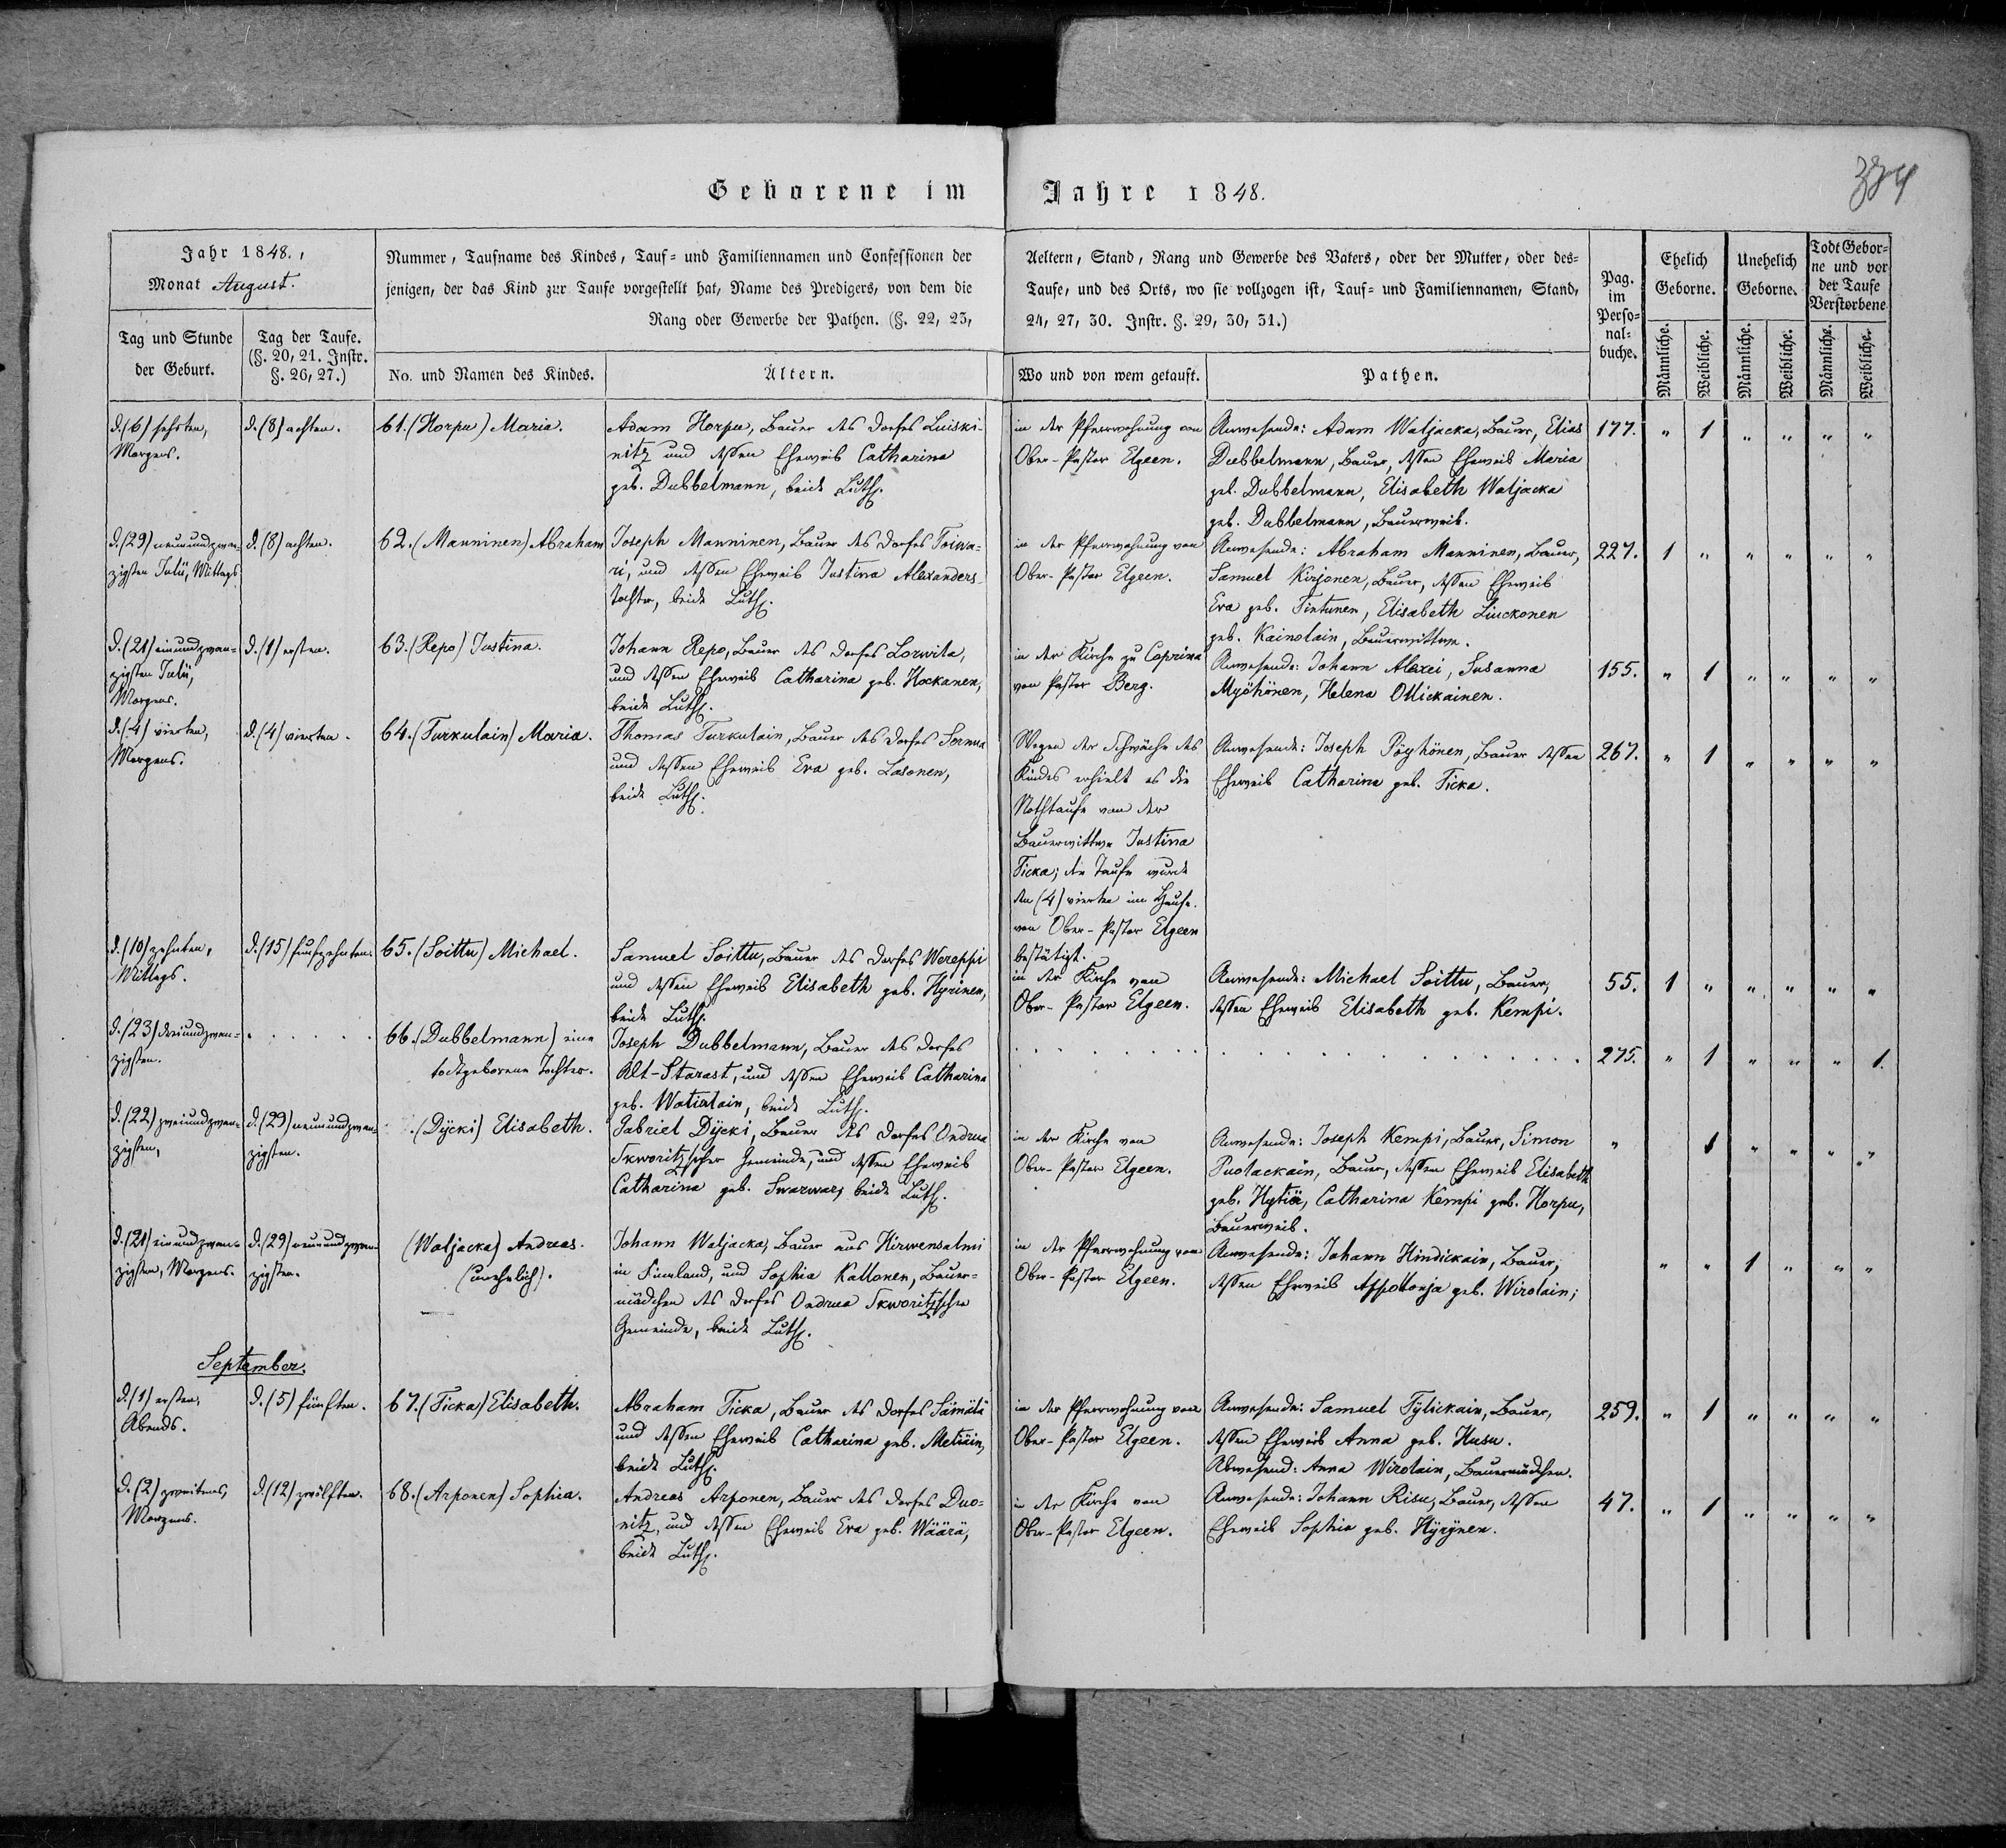 Geborene im Jahre 1848.
334
Jahr 1848.,
Monat August.
Tag und Stunde
der Geburt.
Tag der Taufe.
(§. 20, 21. Instr.
§. 26, 27.)
Nummer, Taufname des Kindes, Tauf= und Familiennamen und Confessionen der
jenigen, der das Kind zur Taufe vorgestellt hat, Name des Predigers, von dem die
Rang oder Gewerbe der Pathen. (§. 22, 23,
No. und Namen des Kindes.
Ältern.
Aeltern, Stand, Rang und Gewerbe des Vaters, oder der Mutter, oder des=
Taufe, und des Orts, wo sie vollzogen ist, Tauf= und Familiennamen, Stand,
24, 27, 30. Instr. §. 29, 30, 31.)
Wo und von wem getauft.
Pathen.
Pag.
im
Perso=
nal=
buche.
Ehelich
Geborne.
Unehelich
Geborne.
Todt Gebor=
ne und vor
der Taufe
Verstorbene
Männliche.
Weibliche.
Männliche.
Weibliche.
Männliche.
Weibliche.
d. (6) sechsten,
Morgens.
d. (8) achten.
61. (Horpu) Maria.
Adam Horpu, Bauer des Dorfes Luiski-
nitz und dessen Eheweib Catharina
geb. Dubbelmann, beide Luth.
in der Pfarrwohnung von
Ober-Pastor Elgeen.
Anwesende: Adam Waljacka, Bauer, Elias
Dubbelmann, Bauer, dessen Eheweib Maria
geb. Dubbelmann, Elisabeth Waljacka
geb. Dubbelmann, Bauerweib.
177. " 1 " " " "
d. (29) neunundzwan-
zigsten Julii, Mittags
d. (8) achten.
62. (Manninen) Abraham
Joseph Manninen, Bauer des Dorfes Toiwa=
ri, und dessen Eheweib Justina Alexanders-
tochter, beide Luth.
in der Pfarrwohnung von
Ober-Pastor Elgeen.
Anwesende: Abraham Manninen, Bauer,
Samuel Kirjonen, Bauer, dessen Eheweib
Eva geb. Tintunen, Elisabeth Liuckonen
geb. Kainolain, Bauerwittwe.
227. 1 " " " " "
d. (21) einundzwan=
zigsten Julii,
Morgens.
d. (1) ersten.
63. (Repo) Justina.
Johann Repo, Bauer des Dorfes Lorwila,
und dessen Eheweib Catharina geb. Hockanen,
beide Luth.
in der Kirche zu Caprina
von Pastor Berg.
Anwesende: Johann Alexei, Susanna
Myöhönen, Helena Ollickainen.
155. " 1 " " " "
d. (4) vierten,
Morgens.
d. (4) vierten.
64. (Turkulain) Maria.
Thomas Turkulain, Bauer des Dorfes Sormu
und dessen Eheweib Eva geb. Lasonen,
beide Luth.
Wegen der Schwäche des
Kindes erhielt es die
Nothtaufe von der
Bauerwittwe Justina
Ticka; die Taufe wurde
den (4) vierten im Hause
von Ober-Pastor Elgeen
bestätigt.
Anwesende: Joseph Pöyhönen, Bauer dessen
Eheweib Catharina geb. Ticka.
267. " 1 " " " "
d. (10) zehnten,
Mittags.
d. (15) funfzehnten.
65. (Soittu) Michael.
Samuel Soittu, Bauer des Dorfes Wereppi
und dessen Eheweib Elisabeth geb. Hyrinen,
beide Luth.
in der Kirche von
Ober-Pastor Elgeen.
Anwesende: Michael Soittu, Bauer,
dessen Eheweib Elisabeth geb. Kempi.
55. 1 " " " " "
d. (23) dreiundzwan=
zigsten.
66. (Dubbelmann) eine
todtgeborene Tochter.
Joseph Dubbelmann, Bauer des Dorfes
Alt-Starast, und dessen Eheweib Catharina
geb. Watialain, beide Luth.
275. " 1 " " " 1.
d. (22) zweiundzwan-
zigsten,
d. (29) neunundzwan-
zigsten.
(Dÿcki) Elisabeth.
Gabriel Dÿcki, Bauer des Dorfes Ondrua
Skworitzscher Gemeinde, und dessen Eheweib
Catharina geb. Swarwar, beide Luth.
in der Kirche von
Ober-Pastor Elgeen.
Anwesende: Joseph Kempi, Bauer, Simon
Puolackain, Bauer, dessen Eheweib Elisabeth
geb. Hytiä, Catharina Kempi geb. Horpu,
Bauerweib.
" 1 " " " "
d. (21) einundzwan-
zigsten, Morgens.
d. (29) neunundzwan-
zigsten.
(Waljacka) Andreas.
(unehelich).
Johann Waljacka, Bauer aus Hirwensalmi
in Finnland, und Sophia Kallonen, Bauer=
mädchen des Dorfes Ondrua Skworitzscher
Gemeinde, beide Luth.
in der Pfarrwohnung von
Ober-Pastor Elgeen.
Anwesende: Johann Hindickain, Bauer,
dessen Eheweib Appollonja geb. Wirolain;
" " 1 " " "
September.
d. (1) ersten,
Abends.
d. (5) fünften.
67. (Ticka) Elisabeth.
Abraham Ticka, Bauer des Dorfes Sämälä
und dessen Eheweib Catharina geb. Metiäin,
beide Luth.
in der Pfarrwohnung von
Ober-Pastor Elgeen.
Anwesende: Samuel Tylickain, Bauer,
dessen Eheweib Anna geb. Husu.
Abwesend: Anna Wirolain, Bauermädchen.
259. " 1 " " " "
d. (2) zweitens,
Morgens.
d. (12) zwölften.
68. (Arponen) Sophia.
Andreas Arponen, Bauer des Dorfes Duo=
nitz, und dessen Eheweib Eva geb. Wäärä,
beide Luth.
in der Kirche von
Ober-Pastor Elgeen.
Anwesende: Johann Risu, Bauer, dessen
Eheweib Sophia geb. Hÿrÿnen.
47. " 1 " " " "